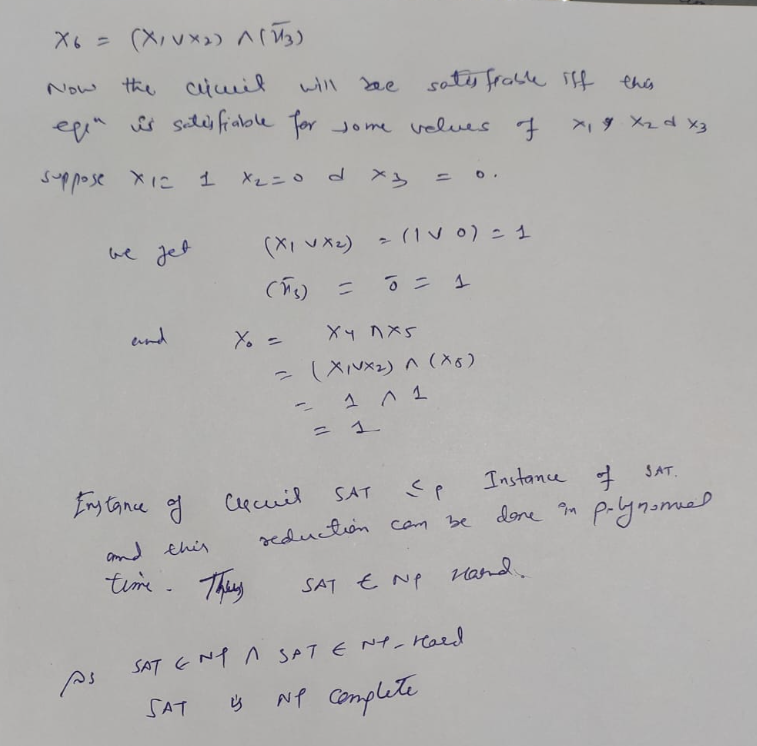 X6 = (X1 ∨ X2) ∧ (x̄3)
Now the circuit will be satisfiable iff this
eqⁿ is satisfiable for some values of x1, X2 d x3
suppose X1 = 1 X2 = 0 d X3 = 0.
we get (X1 ∨ X2) = (1 ∨ 0) = 1
(x̄3) = 0̄ = 1
and X6 = X4 ∧ X5
= (X1 ∨ X2) ∧ (X5)
= 1 ∧ 1
= 1
Instance of Circuit SAT ≤p Instance of SAT.
and this reduction can be done in polynomial
time. Thus SAT ∈ NP Hard.
As SAT ∈ NP ∧ SAT ∈ NP-Hard
SAT is NP Complete